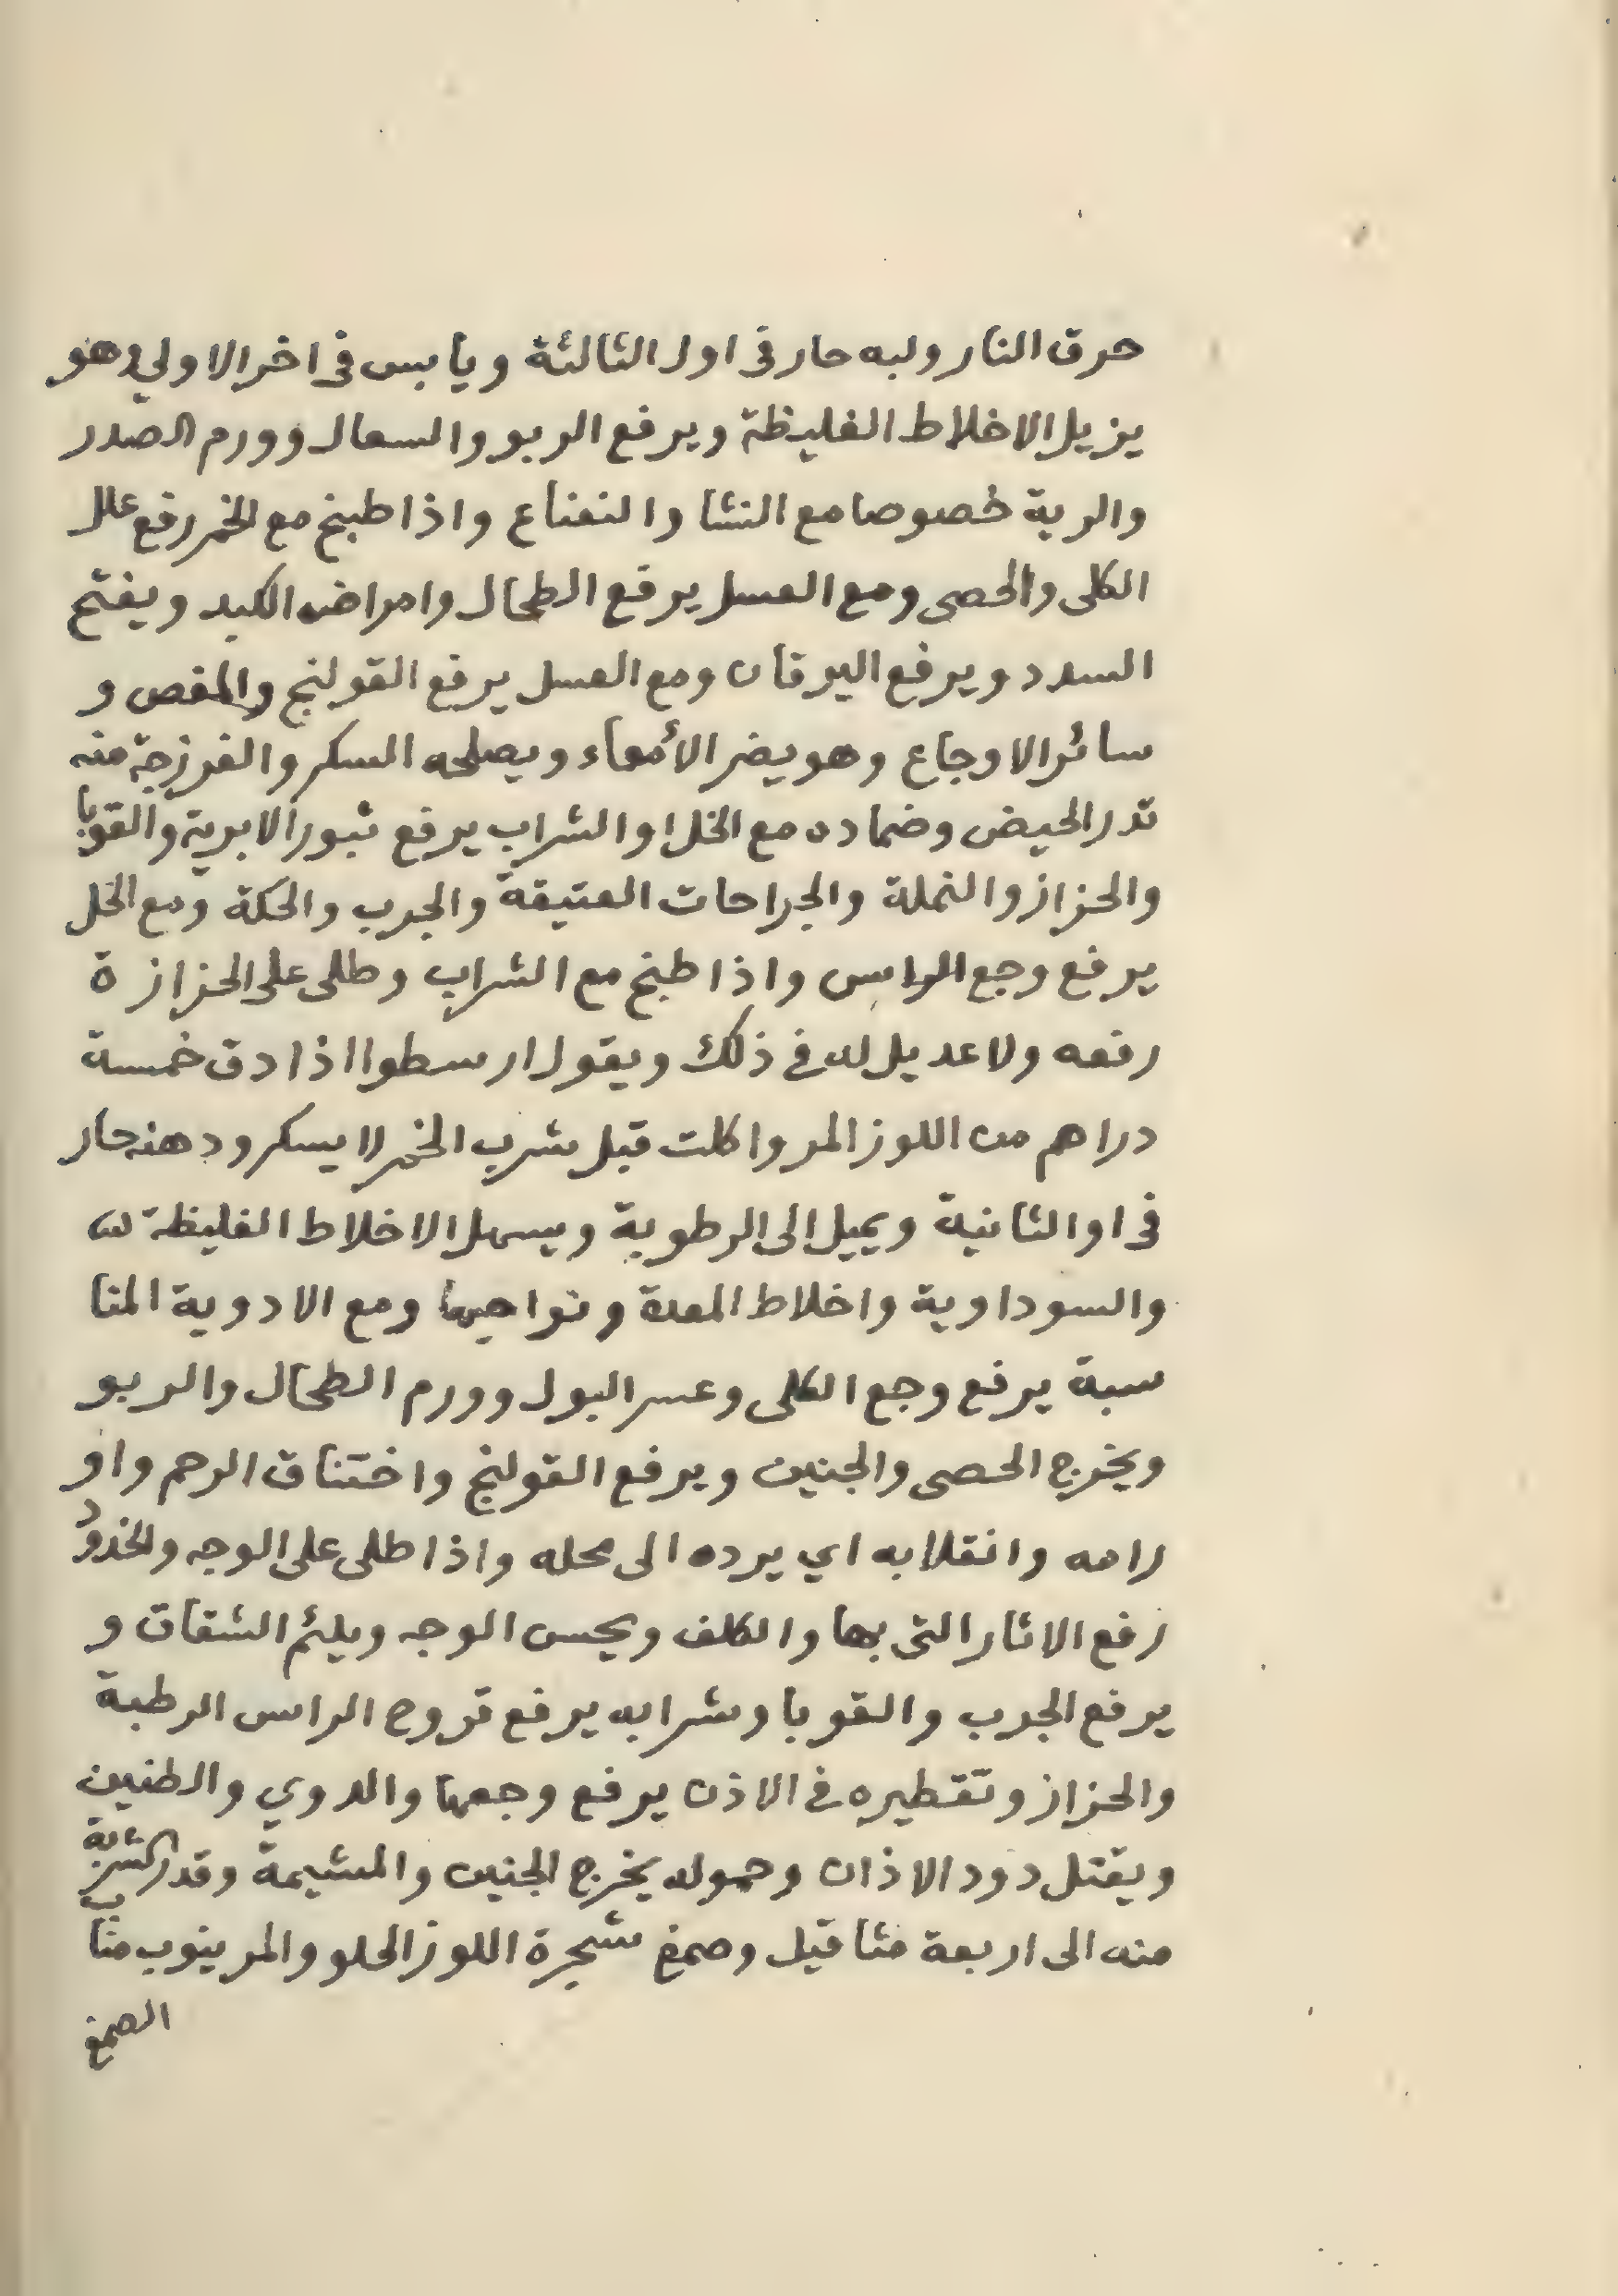 حرق النار ولبه حار فى اول الثالثة ويابس فى اخر الاولي وهو
يزيل الاخلاط الغليظة ويرفع الربو والسعال وورم الصدر
والرية خصوصا مع النشا والنعناع واذا طبخ مع الخمر رفع علل
الكلى والحصى ومع العسل يرفع الطحال وامراض الكبد ويفتح
السدد ويرفع اليرقان ومع العسل يرفع القولنج والمغص و
سائر الاوجاع وهو يضر الأمعاء ويصلحه السكر والفرزجة منه
تدر الحيض وضماده مع الخل او الشراب يرفع ثبور الابرية والقوبا
والحزاز والنملة والجراحات العتيقة والجرب والحكة ومع الخل
يرفع وجع الراس واذا طبخ مع الشراب وطلى على الحزازة
رفعه ولا عديل له فى ذلك ويقول ارسطوا اذا دق خمسة
دراهم من اللوز المر واكلت قبل شرب الخمر لا يسكر ودهنه حار
فى او الثانية ويميل الى الرطوبة ويسهل الاخلاط الغليظة
والسوداوية واخلاط المعدة ونواحيها ومع الادوية المنا
سبة يرفع وجع الكلى وعسر البول وورم الطحال والربو
ويخرج الحصى والجنين ويرفع القولنج واختناق الرحم واو
رامه وانقلابه اي يرده الى محله واذا طلى على الوجه والخدود
رفع الاثار التى بها والكلف ويحسن الوجه ويلئم الشقاق و
يرفع الجرب والقوبا وشرابه يرفع قروح الراس الرطبة
والحزاز وتقطيره فى الاذن يرفع وجعها والدوي والطنين
ويقتل دود الاذان وحموله يخرج الجنين والمشيمة وقدر الشربة
منه الى اربعة مثاقيل وصمغ شجرة اللوز الحلو والمر ينوب مناب
الصمغ